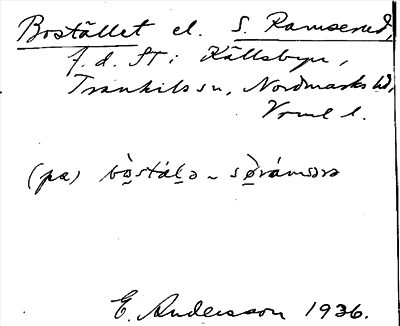 Bostället el. S. Ramserud,
f. d. ST i Källsbyn,
Trankils sn, Nordmarks hd,
Vrml l.
(pa) bò̠stál̠ə ~ sø̠rámsərə
E. Andersson 1936.